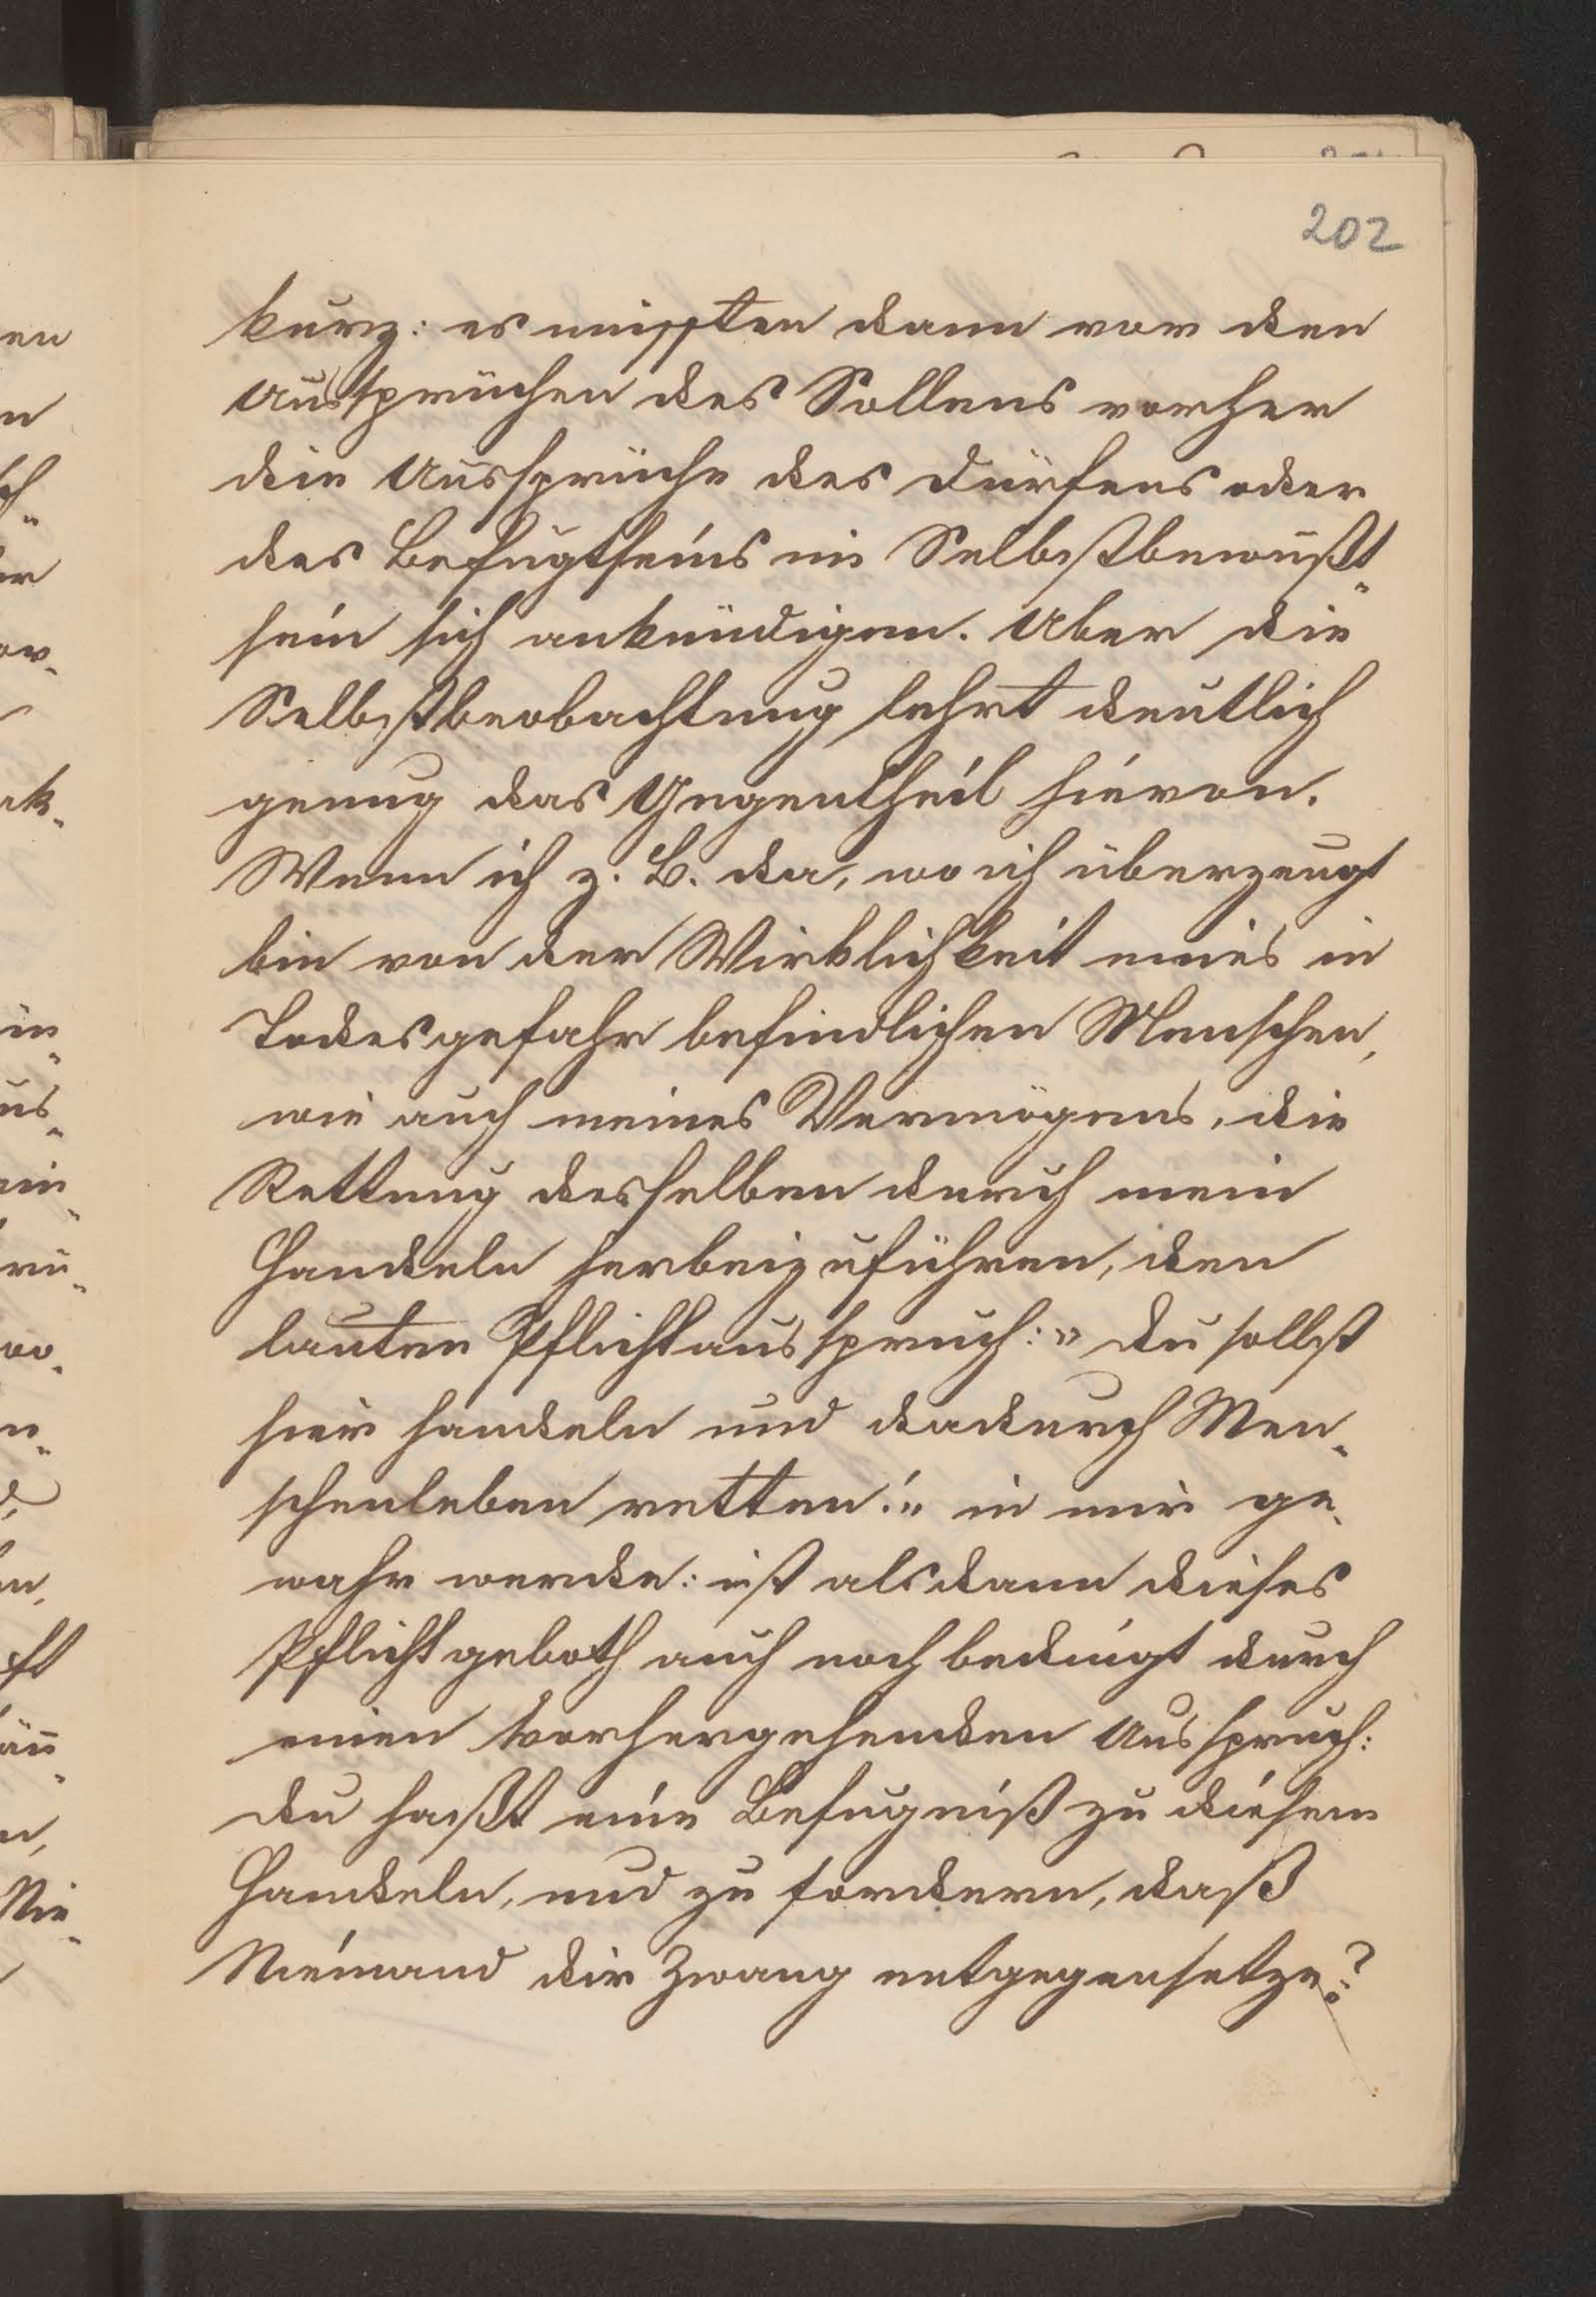 202
kurz: es müssten dann vor den
Aussprüchen des Sollens vorher
die Aussprüche des Dürfens oder
des Befugtseins im Selbstbewußt„
sein sich ankündigen. Aber die
Selbstbeobachtung lehrt deutlich
genug das Gegentheil hievon.
Wenn ich z. B. da, wo ich überzeugt
bin von der Wirklichkeit eines in
Todesgefahr befindlichen Menschen,
wie auch meines Vermögens, die
Rettung desselben durch mein
Handeln herbeizuführen, den
lauten Pflichtausspruch: „Du sollst
hier handeln und dadurch Men„
schenleben retten!" in mir ge„
wahr werde: ist alsdann dieses
Pflichtgeboth auch noch bedingt durch
einen vorhergehenden Ausspruch:
du haßt eine Befugniß zu diesem
Handeln, und zu fordern, daß
Niemand dir Zwang entgegensetze?